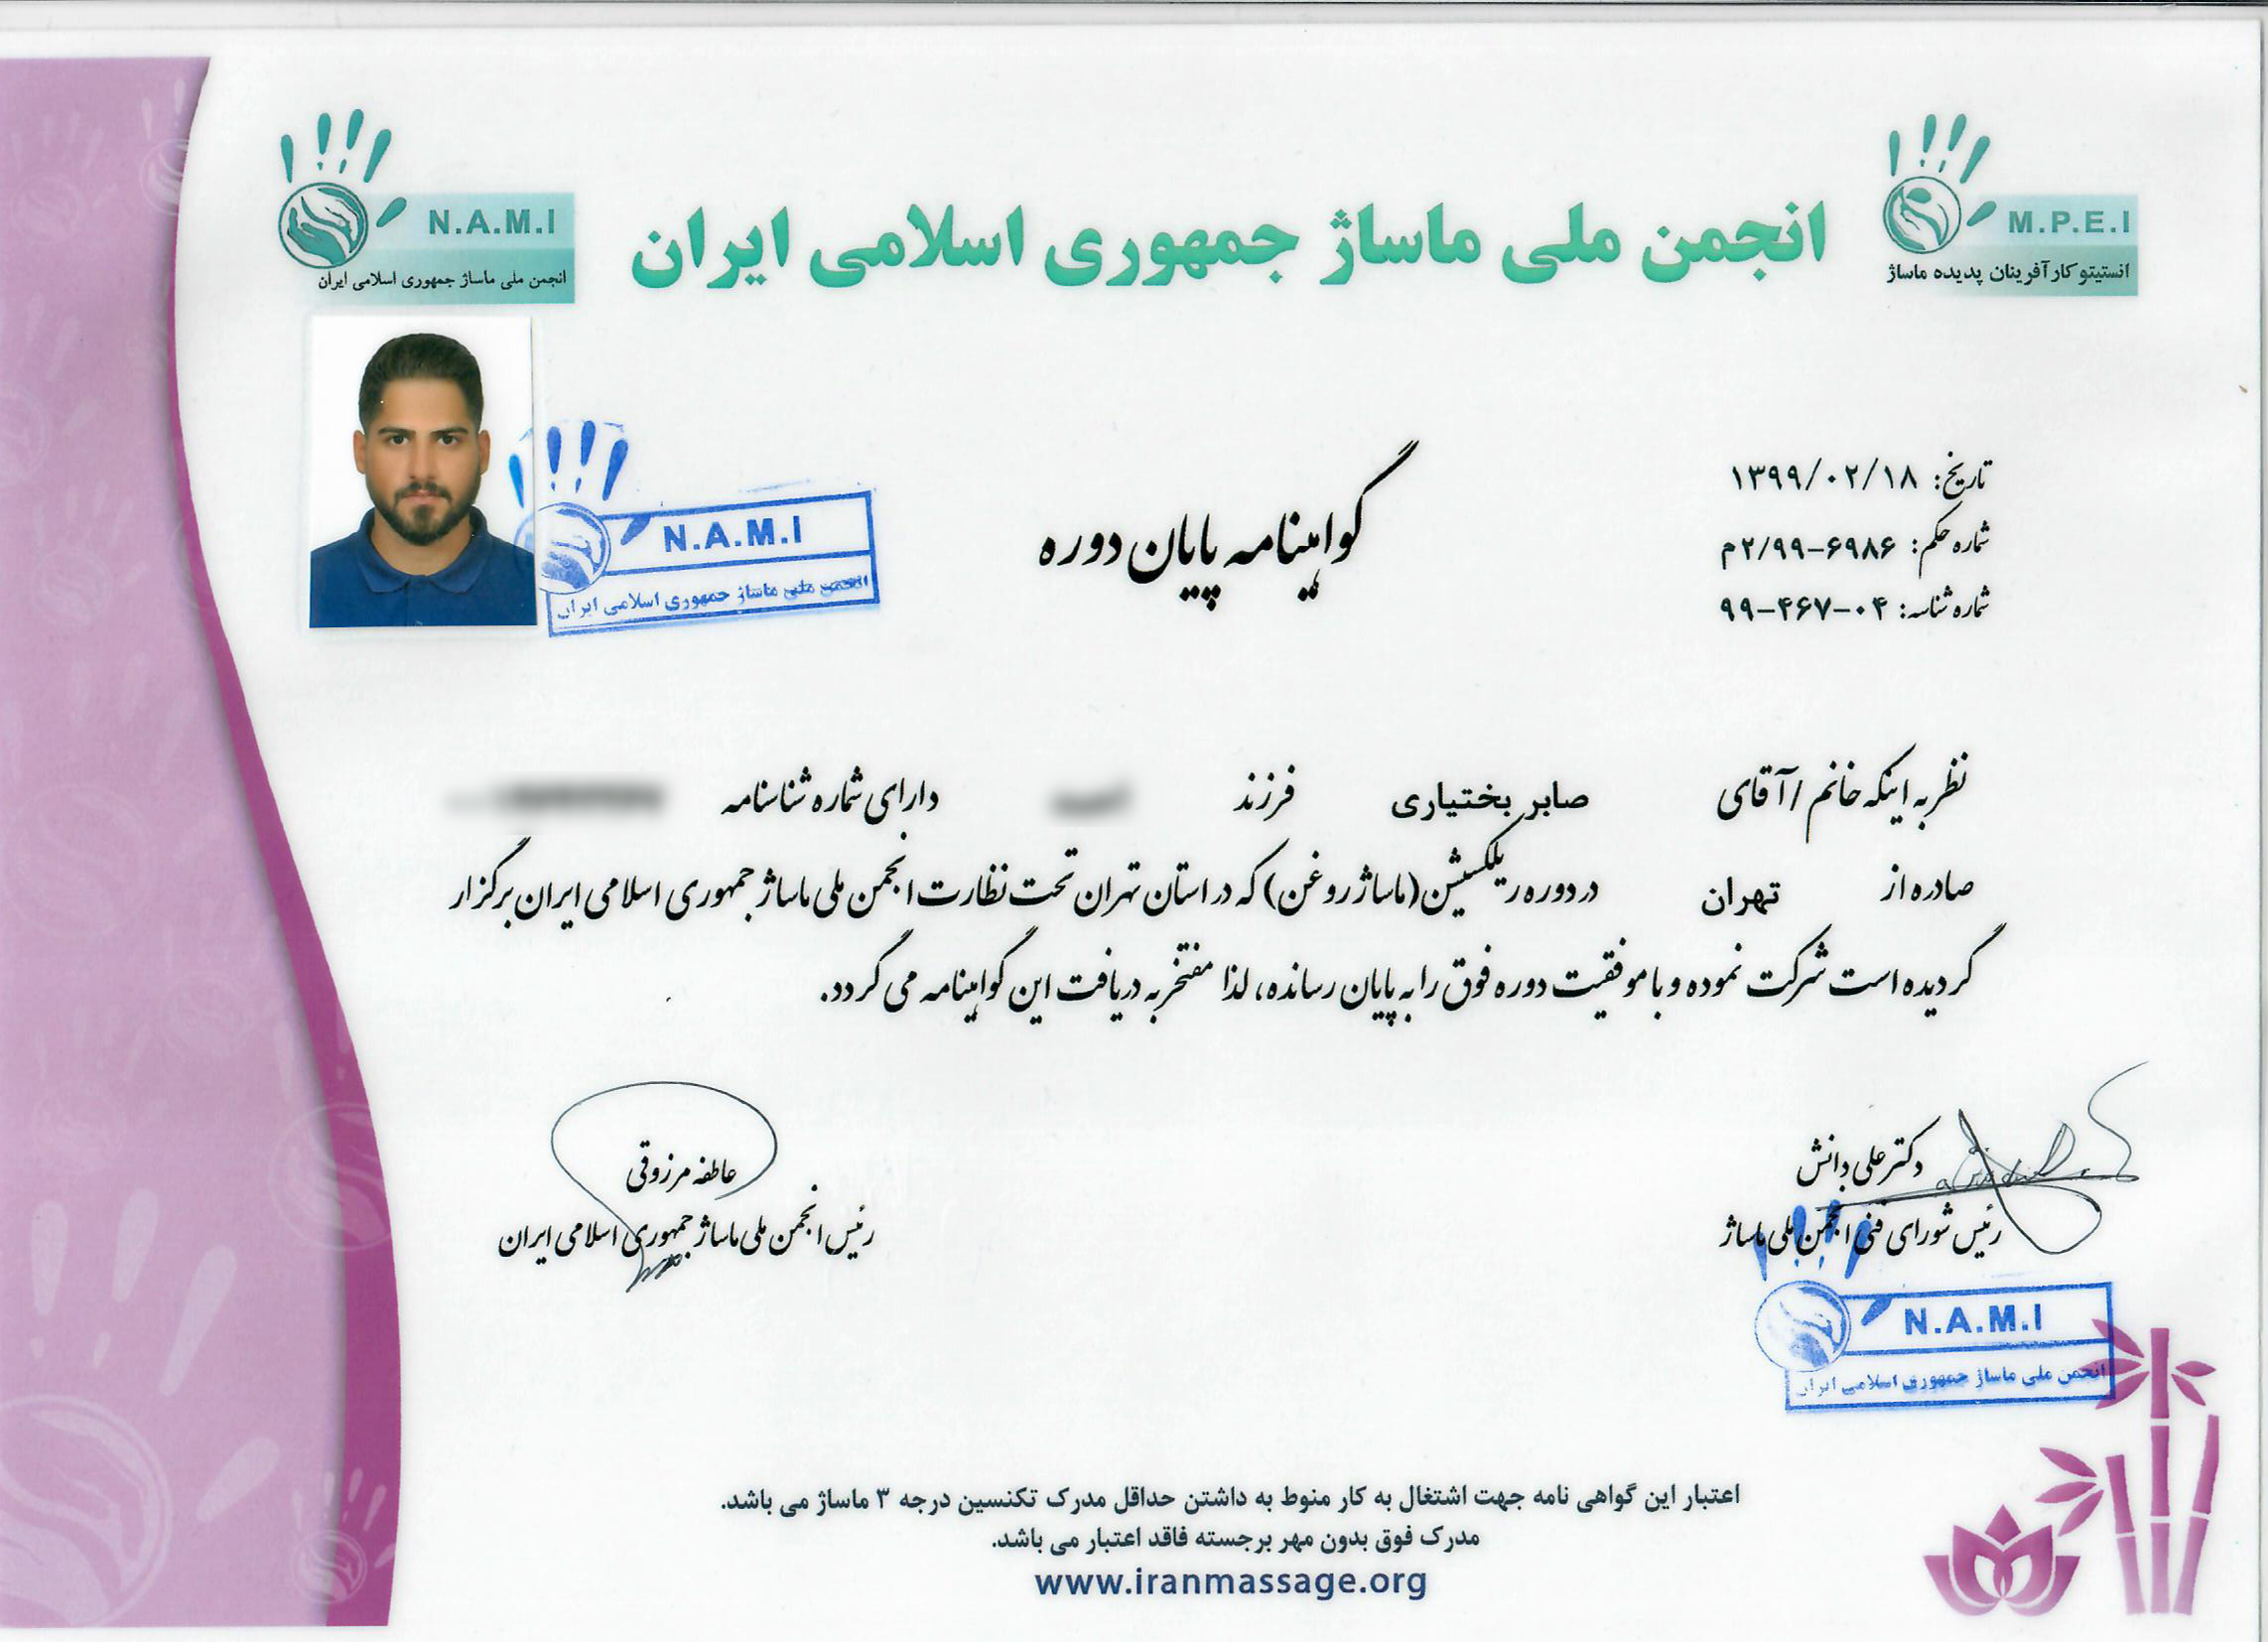 N.A.M.I
انجمن ملی ماساژ جمهوری اسلامی ایران
انجمن ملی ماساژ جمهوری اسلامی ایران
M.P.E.I
انستیتو کارآفرینان پدیده ماساژ
تاریخ: ۱۳۹۹/۰۲/۱۸
شماره حکم: ۲/۹۹-۶۹۸۶م
شماره شناسه: ۹۹-۴۶۷-۰۴
گواهینامه پایان دوره
N.A.M.I
انجمن ملی ماساژ جمهوری اسلامی ایران
نظر به اینکه خانم / آقای صابر بختیاری فرزند دارای شماره شناسنامه
صادره از تهران در دوره ریلکسیشن (ماساژ روغن) که در استان تهران تحت نظارت انجمن ملی ماساژ جمهوری اسلامی ایران برگزار
گردیده است شرکت نموده و با موفقیت دوره فوق را به پایان رسانده، لذا مفتخر به دریافت این گواهینامه می گردد.
دکتر علی دانش
رئیس شورای فنی انجمن ملی ماساژ
عاطفه مرزوقی
رئیس انجمن ملی ماساژ جمهوری اسلامی ایران
N.A.M.I
انجمن ملی ماساژ جمهوری اسلامی ایران
اعتبار این گواهی نامه جهت اشتغال به کار منوط به داشتن حداقل مدرک تکنسین درجه ۳ ماساژ می باشد.
مدرک فوق بدون مهر برجسته فاقد اعتبار می باشد.
www.iranmassage.org